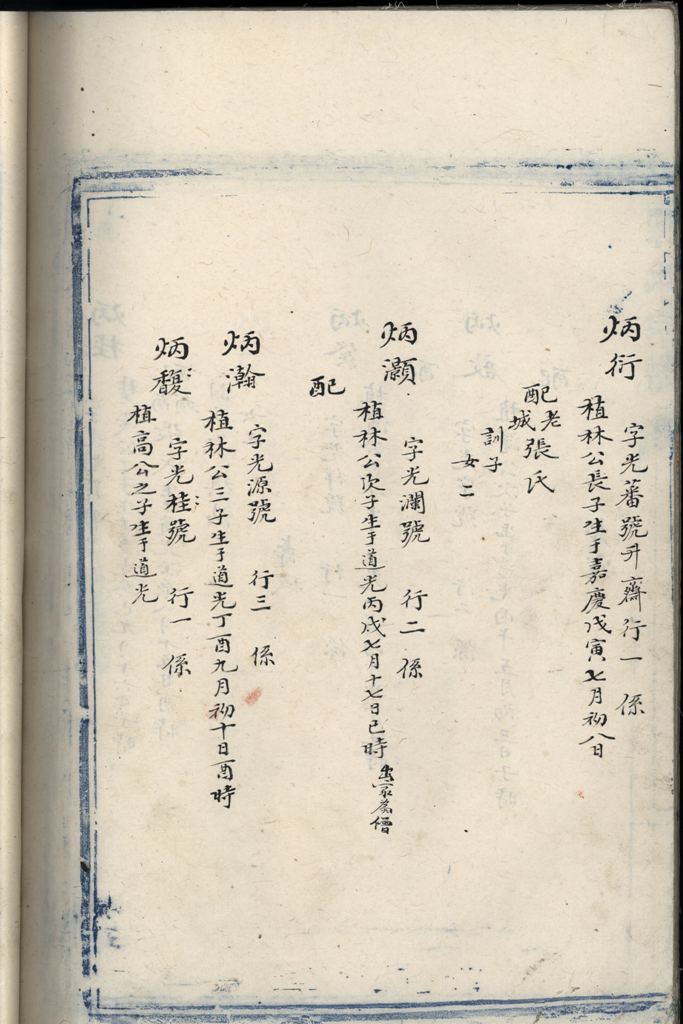 炳衍
字光蕃號升齋行一 係
植林公長子生于嘉慶戊寅七月初八日
配老城張氏
訓子
女二
炳灝
字光瀾號 行二 係
植林公次子生于道光丙戌七月十七日巳時出家為僧
配
炳瀚
字光源號 行三 係
植林公三子生于道光丁酉九月初十日酉時
炳馥
字光桂號 行一 係
植高公之子生于道光